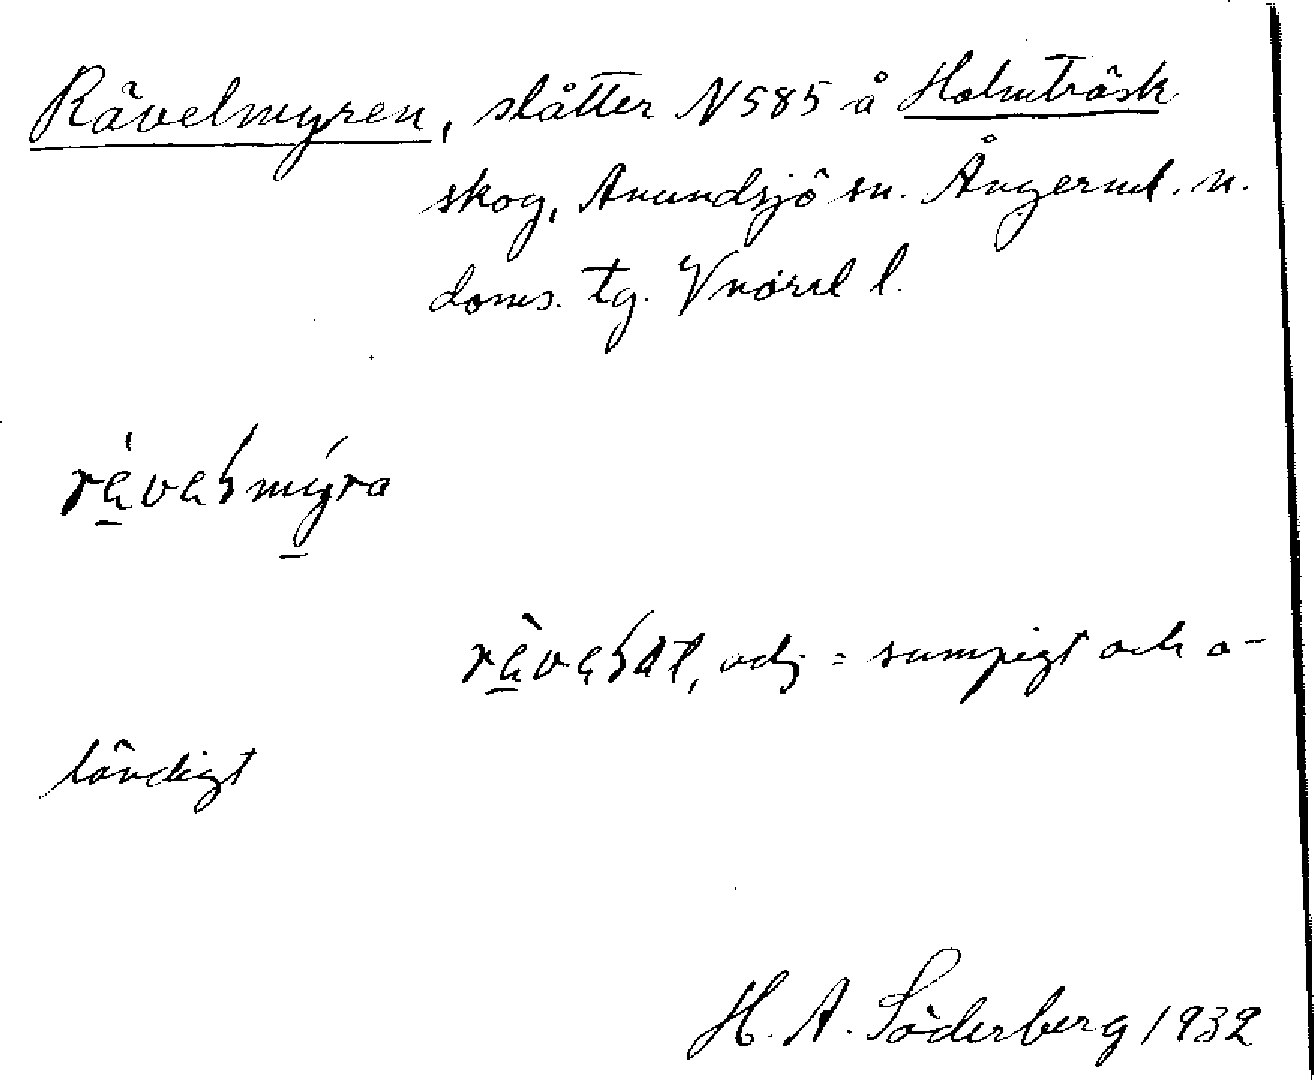 Rävelmyren, slåtter N 585 å Holmträsk
skog, Anundsjö sn. Ångerml. n.
doms. tg. Vnorrl l.
rävaɽmyra
rävaɽat, adj = sumpigt och o-
ländigt
H. A. Söderberg 1932